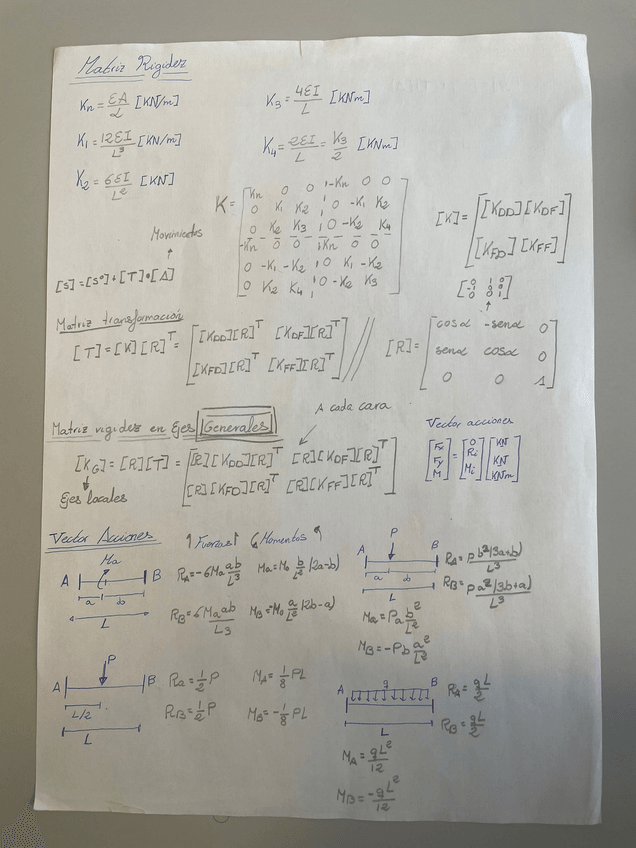 Matriz Rigidez
Kn = EA/L [KN/m]
K3 = 4EI/L [KNm]
K1 = 12EI/L³ [KN/m]
K4 = 2EI/L = K3/2 [KNm]
K2 = 6EI/L² [KN]
K =
Kn 0 0 -Kn 0 0
0 K1 K2 0 -K1 K2
0 K2 K3 0 -K2 K4
-Kn 0 0 Kn 0 0
0 -K1 -K2 0 K1 -K2
0 K2 K4 0 -K2 K3
[K] = [[KDD] [KDF]
[KFD] [KFF]]
Movimientos
[S] = [S⁰] + [T]·[Δ]
[0 1 0
-1 0 0
0 0 1]
Matriz transformación
[T] = [K][R]ᵀ = [[KDD][R]ᵀ [KDF][R]ᵀ
[KFD][R]ᵀ [KFF][R]ᵀ]
[R] = [cosα -senα 0
senα cosα 0
0 0 1]
A cada cara
Matriz rigidez en Ejes Generales
[KG] = [R][T] = [[R][KDD][R]ᵀ [R][KDF][R]ᵀ
[R][KFD][R]ᵀ [R][KFF][R]ᵀ]
Ejes locales
Vector acciones
[Fx Fy M] = [0 Ri Mi] [KN KN KNm]
Vector Acciones
↑ Fuerzas ↑
Momentos
Ma
A B
a b
L
RA = -6Ma ab/L³
Ma = Mo b/L² (2a-b)
RB = 6Ma ab/L³
MB = Mo a/L² (2b-a)
P
A B
a b
L
RA = P b²(3a+b)/L³
RB = P a²(3b+a)/L³
Ma = Pa b²/L²
MB = -Pb a²/L²
P
A B
L/2
L
Ra = 1/2 P
MA = 1/8 PL
RB = 1/2 P
MB = -1/8 PL
q
A B
L
RA = qL/2
RB = qL/2
MA = qL²/12
MB = -qL²/12